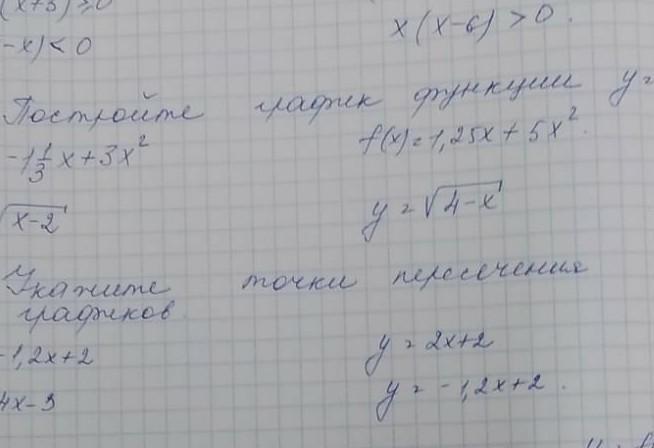 (x+5) ≥ 0
x(x-6) > 0.
-x) < 0
Постройте график функции y=
-1 1/3 x + 3x²
f(x) = 1,25x + 5x².
√x-2
y = √4-x
Укажите точки пересечения
графиков
-1,2x+2
y = 2x+2
4x-3
y = -1,2x+2.